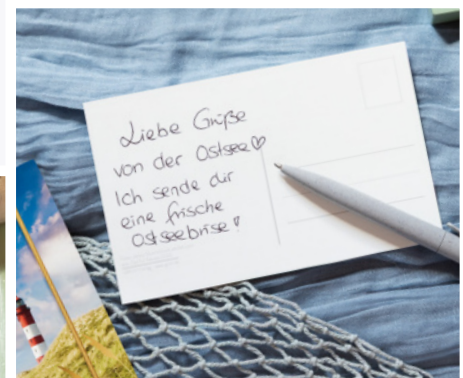 Liebe Grüße
von der Ostsee♡
Ich sende dir
eine frische
Ostseebrise!